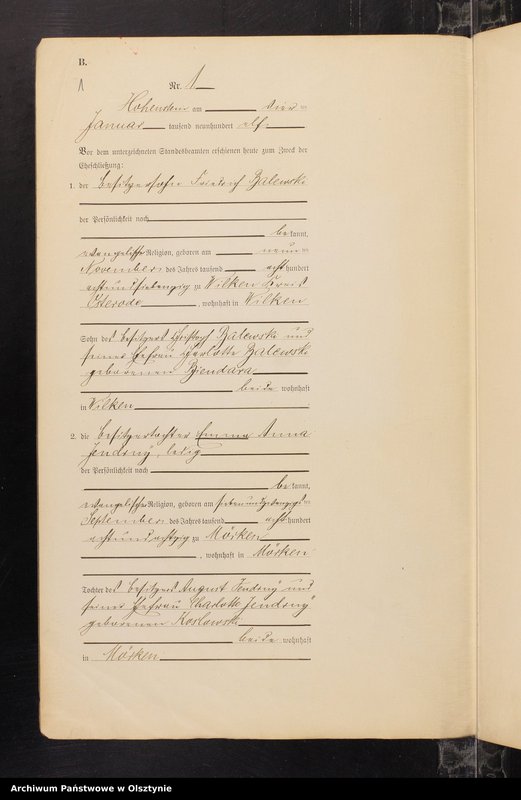 B.
1
Nr. 1
Hohenstein am vier
Januar tausend neunhundert elf
Vor dem unterzeichneten Standesbeamten erschienen heute zum Zweck der
Eheschließung:
1. der Besitzersohn Friedrich Zalewski
der Persönlichkeit nach
be kannt,
evangelischer Religion, geboren am neun
November des Jahres tausend acht hundert
achtundsiebenzig zu Wilken Kreis
Osterode, wohnhaft in Wilken
Sohn des Besitzers Zalewski und
seiner Ehefrau Charlotte Zalewski
geborenen
beide wohnhaft
in Wilken
2. die Besitzertochter Emma Anna
Jendrny, ledig
der Persönlichkeit nach
be kannt,
evangelischer Religion, geboren am siebenundzwanzigs
September des Jahres tausend acht hundert
achtundachtzig zu Mörken
, wohnhaft in Mörken
Tochter des Besitzers August Jendrny und
seiner Ehefrau Charlotte Jendrny
geborenen Koslowski
beide wohnhaft
in Mörken
Archiwum Państwowe w Olsztynie